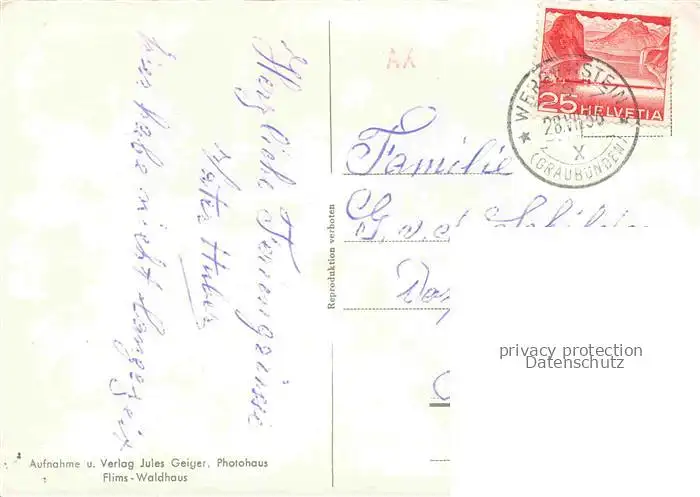 Herzliche Feriengrüsse
Vater Huber
hier habe nicht Langezeit
Aufnahme u. Verlag Jules Geiger, Photohaus
Flims-Waldhaus
Reproduktion verboten
AX
25 HELVETIA
28.VII.
X
(GRAUBÜNDEN)
Familie
G. v. d.
privacy protection
Datenschutz